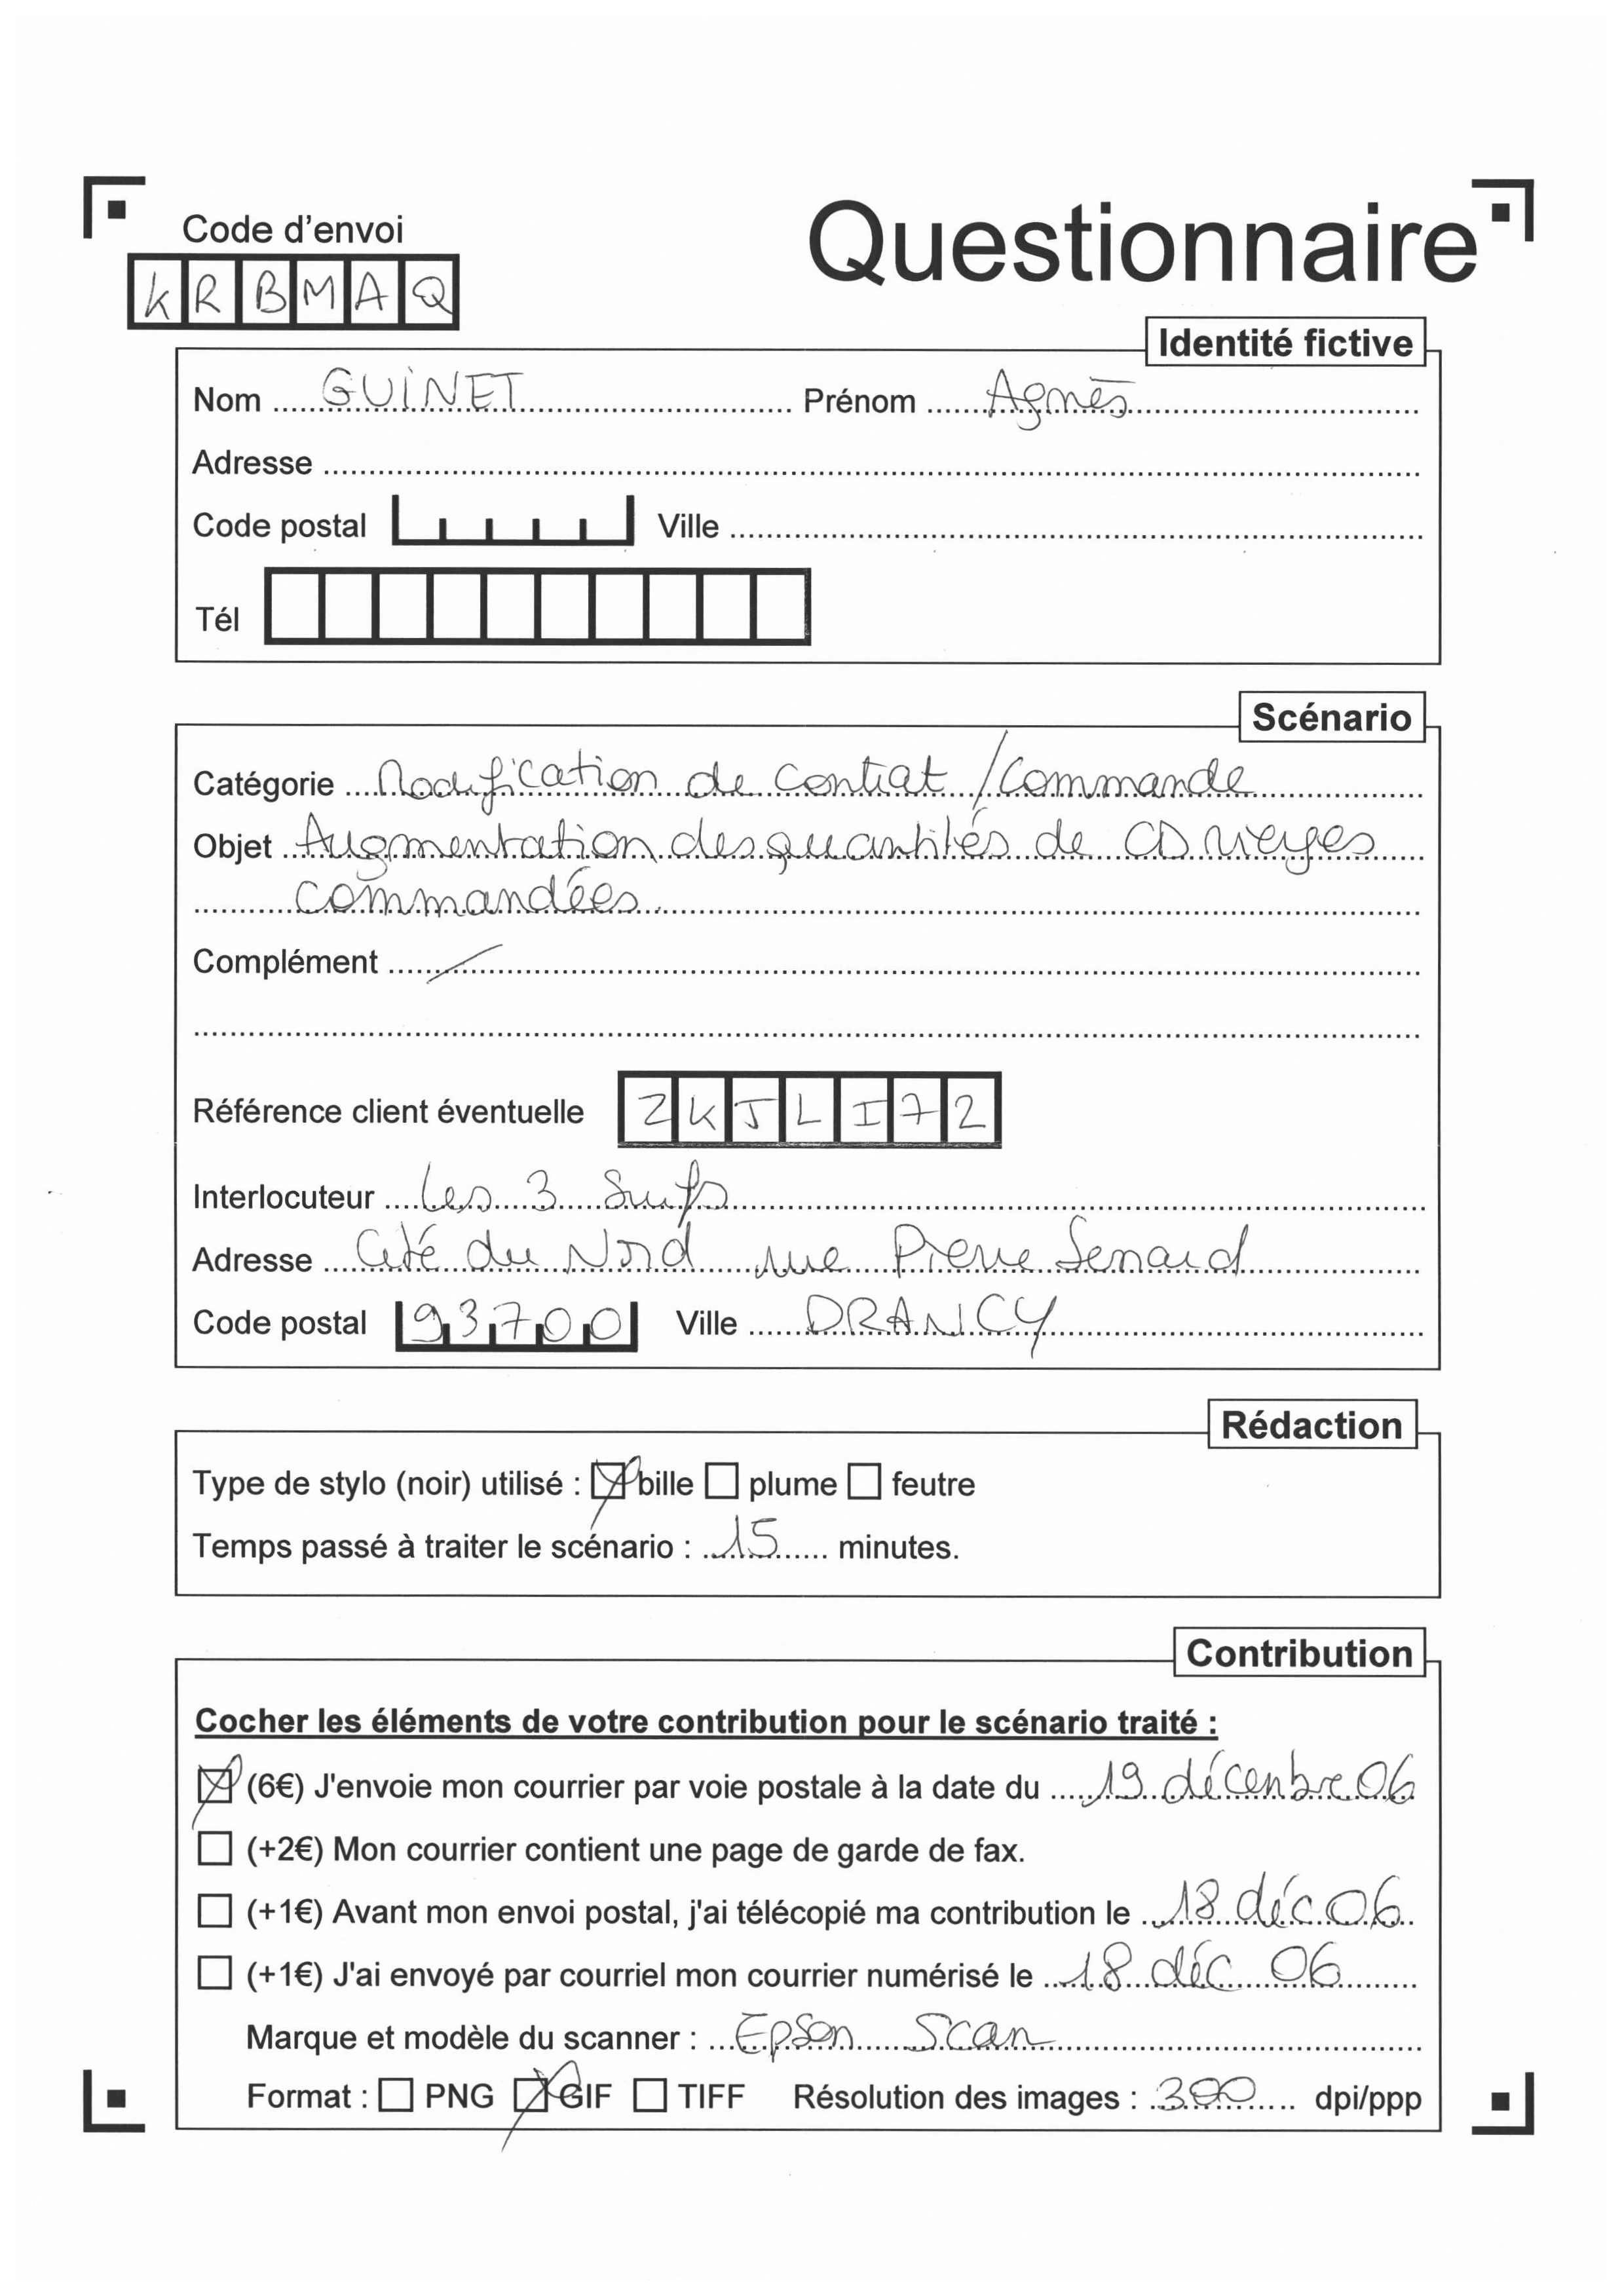 Code d'envoi
Questionnaire
KRBMAQ
Identité fictive
Nom GUINET Prénom Agnès
Adresse
Code postal Ville
Tél
Scénario
Catégorie Modification de contrat / Commande
Objet Augmentation des quantités de CD vierges
commandées.
Complément /
Référence client éventuelle ZKJLI72
Interlocuteur Les 3 Suifs
Adresse Cité du Nord rue Pierre Semard
Code postal 93700 Ville DRANCY
Rédaction
Type de stylo (noir) utilisé : bille plume feutre
Temps passé à traiter le scénario : 15 minutes.
Contribution
Cocher les éléments de votre contribution pour le scénario traité :
(6€) J'envoie mon courrier par voie postale à la date du 19 décembre 06
(+2€) Mon courrier contient une page de garde de fax.
(+1€) Avant mon envoi postal, j'ai télécopié ma contribution le 18 déc 06
(+1€) J'ai envoyé par courriel mon courrier numérisé le 18 déc 06
Marque et modèle du scanner : Epson Scan
Format : PNG GIF TIFF Résolution des images : 300 dpi/ppp